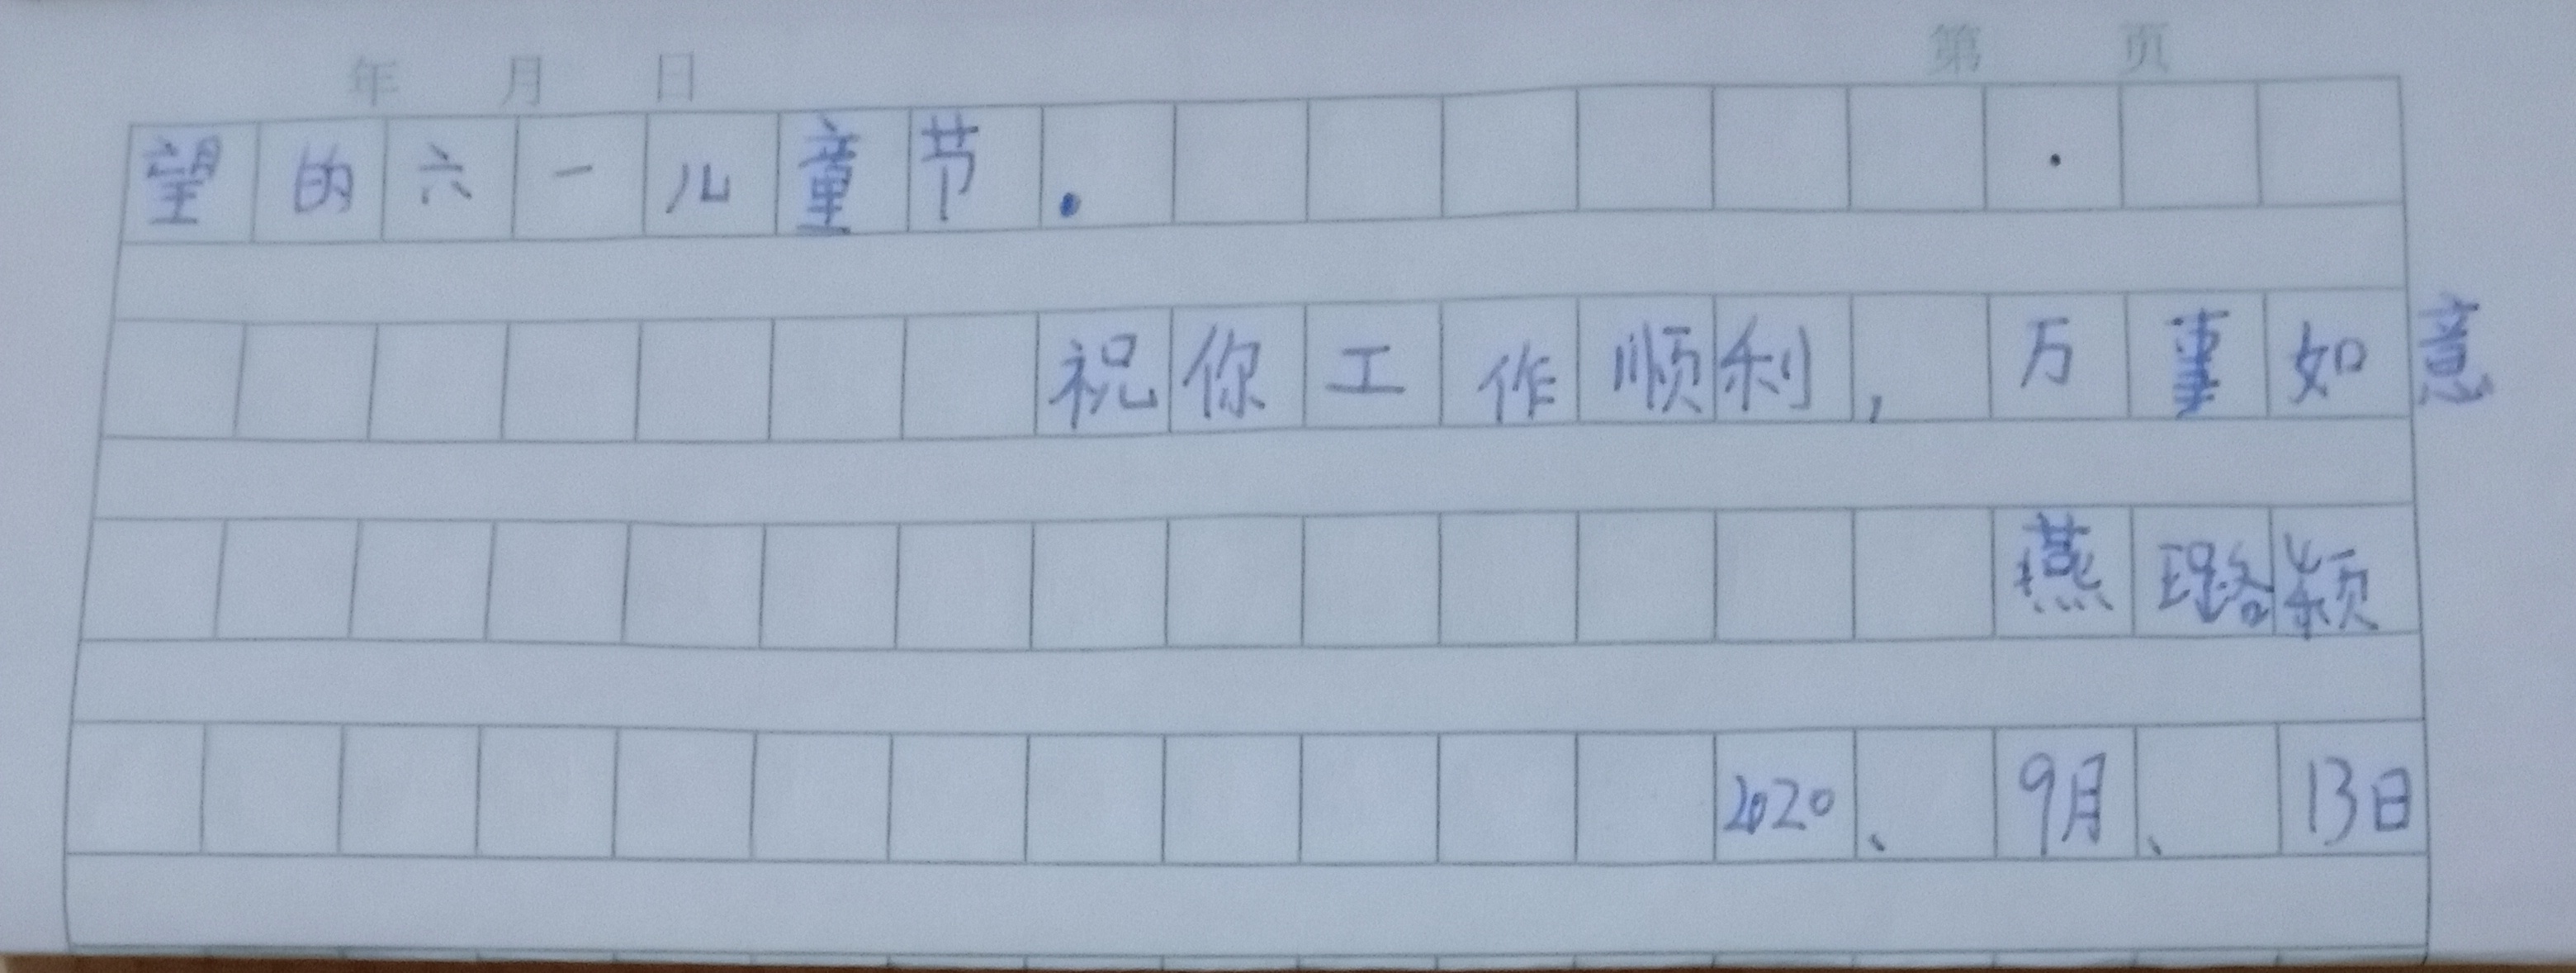 年 月 日 第 页
望的六一儿童节.
祝你工作顺利,万事如意
燕璐颖
2020、9月、13日